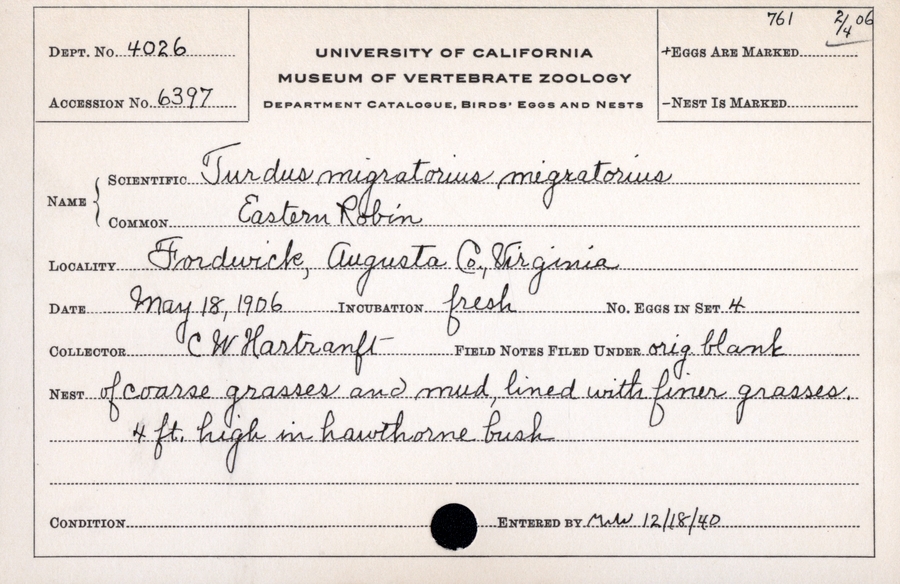 761 2/4 06
DEPT. NO. 4026
UNIVERSITY OF CALIFORNIA
+EGGS ARE MARKED
MUSEUM OF VERTEBRATE ZOOLOGY
ACCESSION NO. 6397
DEPARTMENT CATALOGUE, BIRDS' EGGS AND NESTS
-NEST IS MARKED
NAME
SCIENTIFIC Turdus migratorius migratorius
COMMON Eastern Robin
LOCALITY Fordwick, Augusta Co., Virginia
DATE May 18, 1906 INCUBATION fresh NO. EGGS IN SET 4
COLLECTOR C W Hartranft FIELD NOTES FILED UNDER orig. blank
NEST of coarse grasses and mud, lined with finer grasses.
4 ft. high in hawthorne bush
CONDITION ENTERED BY 12/18/40